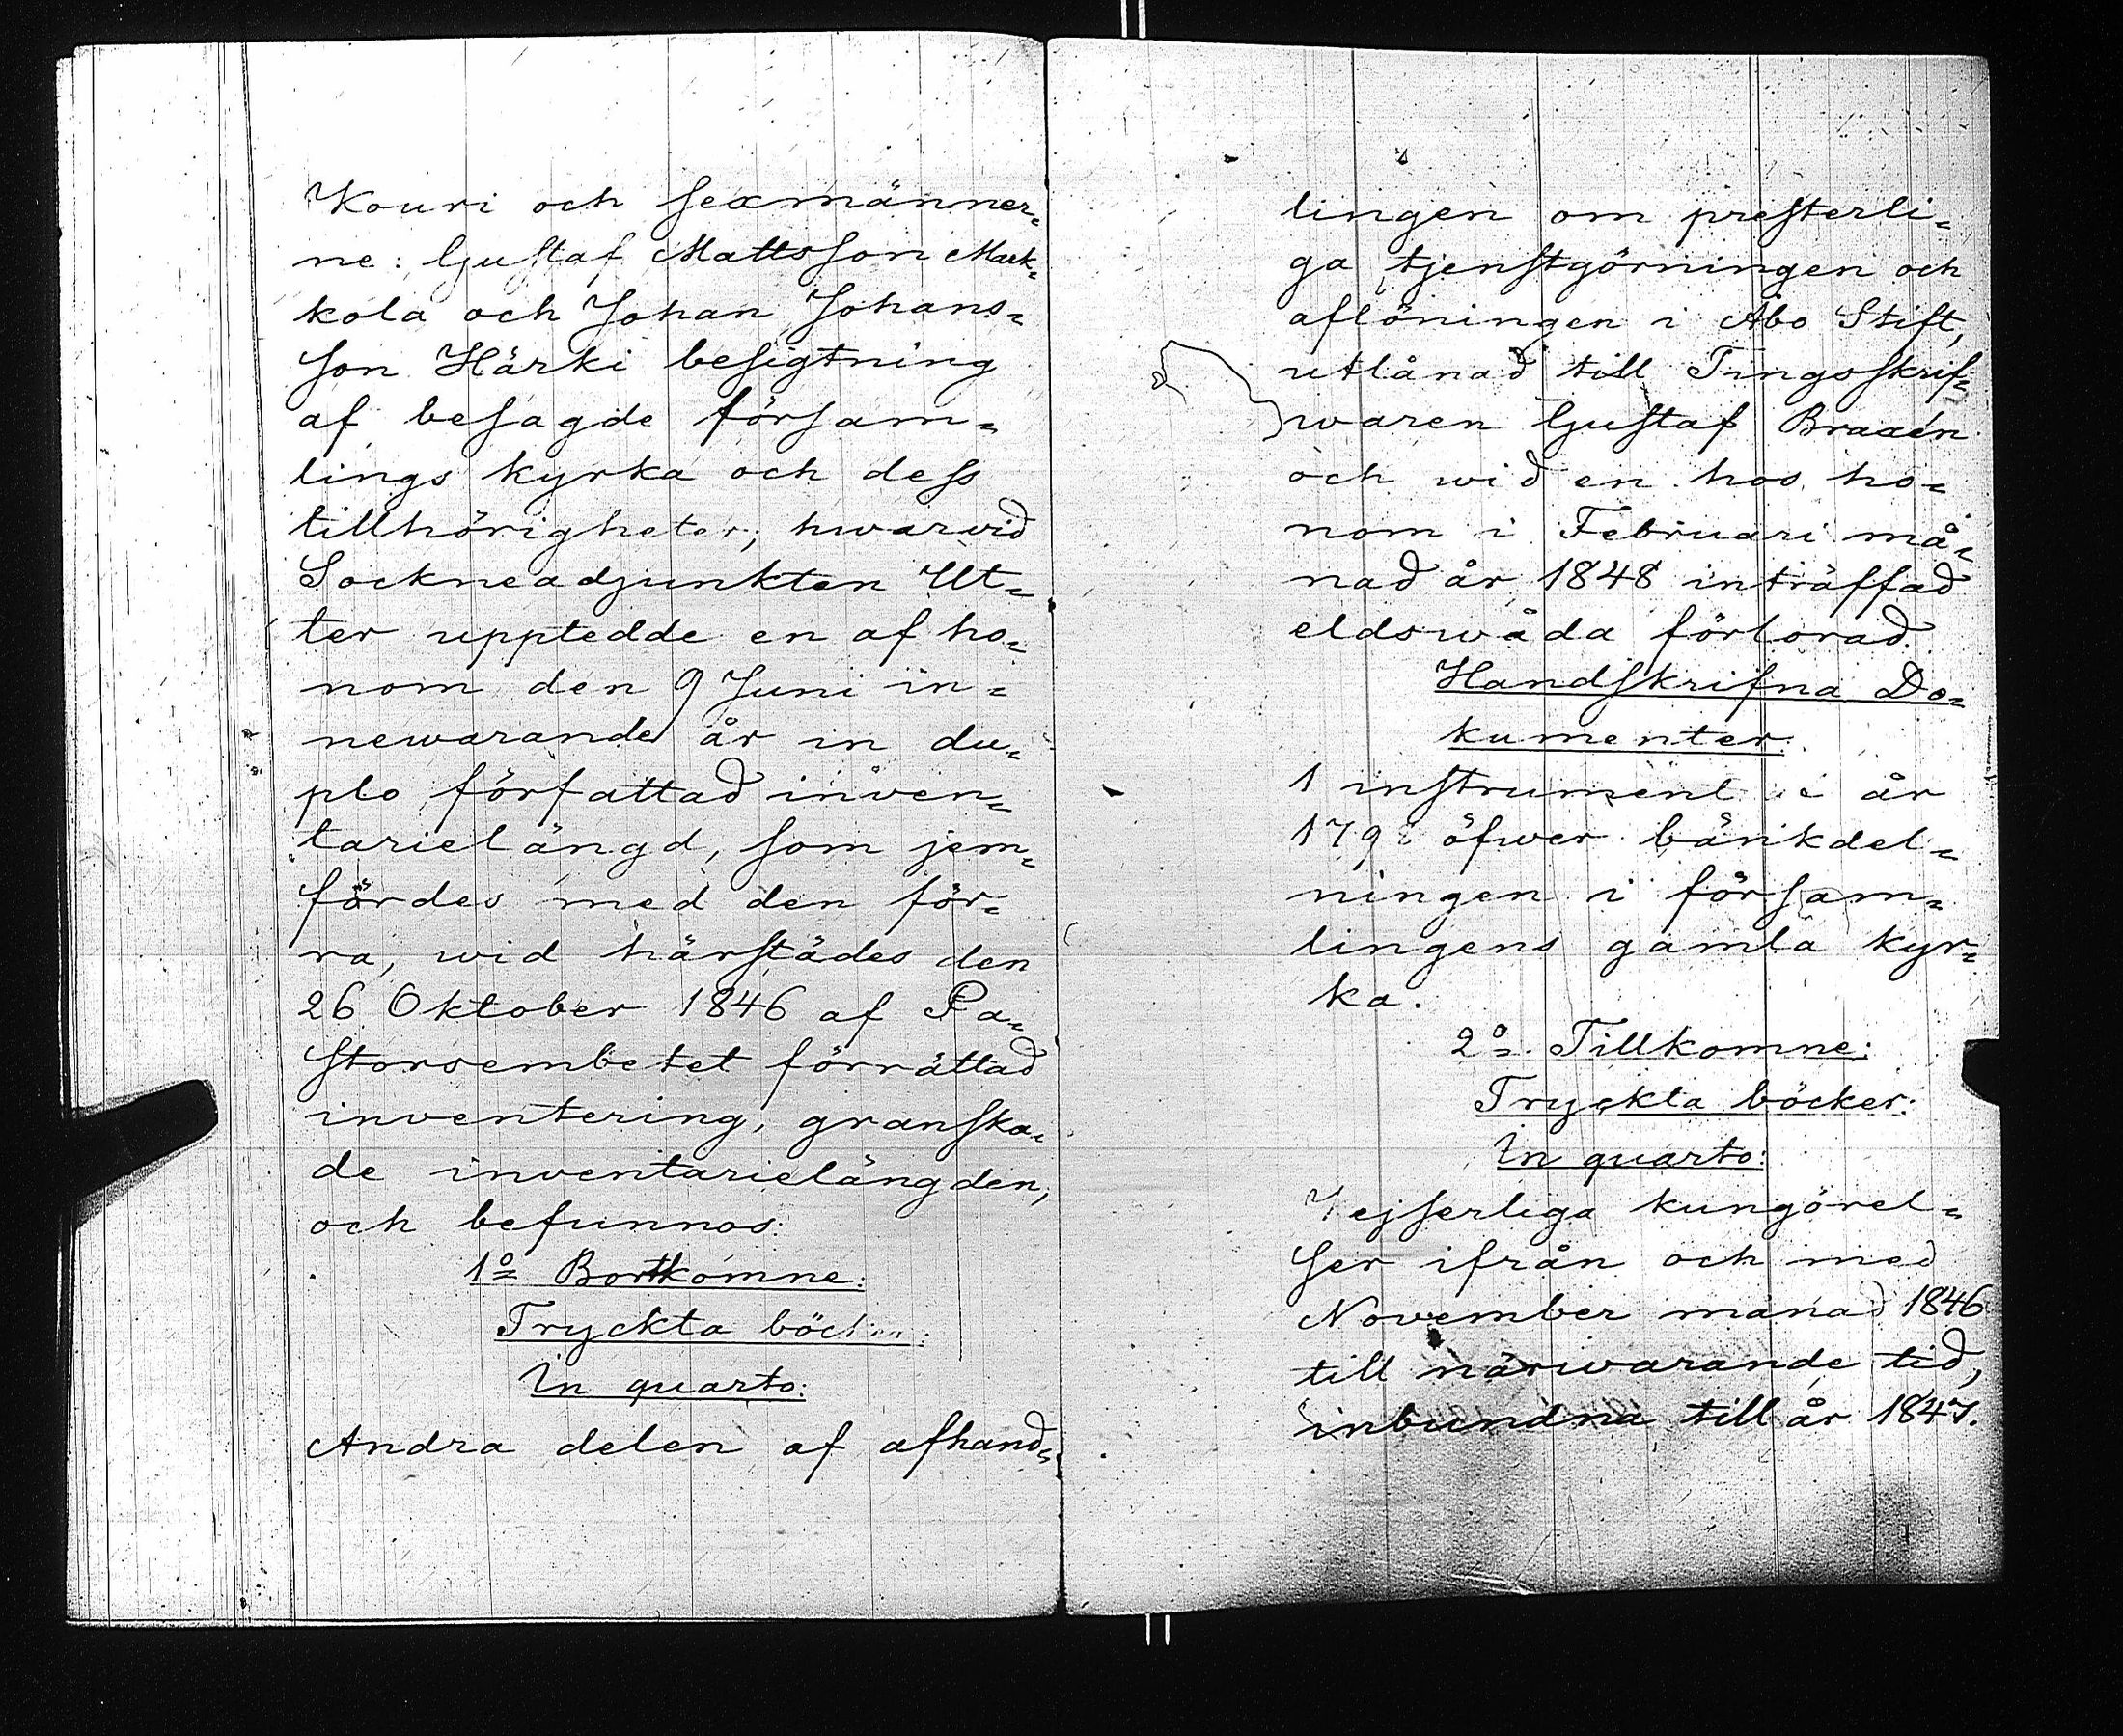 Kouri och sexmänner=
ne: Gustaf Mattsson Mark=
kola och Johan Johans=
son Härki besigtning
af besagde försam=
lings kyrka och dess
tillhörigheter, hwarvid
Sockneadjunkten Ut=
ter upptedde en af ho=
nom den 9 Juni in=
newarande år in du=
plo författad inven=
tarielängd, som jem=
fördes med den för=
ra, wid härstädes den
26 Oktober 1846 af Pa=
storsembetet förrättad
inventering, granska=
de inventarielängden,
och befunnos:
1º Bortkomne:
Tryckta böcker:
In quarto:
Andra delen af afhand=
lingen om presterli=
ga tjenstgörningen och
aflöningen i Åbo Stift,
utlånad till Tingsskrif=
waren Gustaf Braxén
och wid en hos ho=
nom i Februari må=
nad år 1848 inträffad
eldswåda förlorad.
Handskrifna Do=
kumenter:
1 instrument år
öfwer bänkdel=
ningen i försam=
lingens gamla kyr=
ka.
2º Tillkomne:
Tryckta böcker:
In quarto:
Kejserliga kungörel=
ser ifrån och med
November månad 1846
till närwarande tid,
inbundna till år 1847.